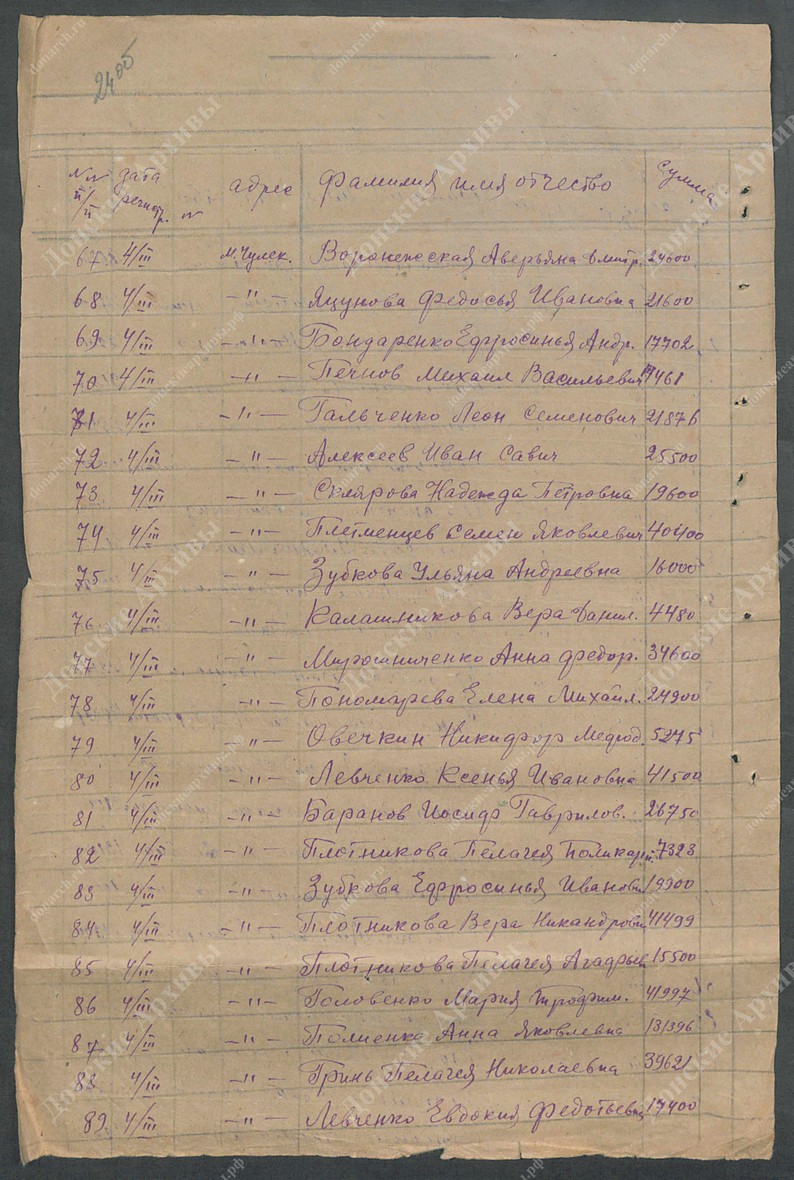 2405
№№ п/п дата регистр. № адрес фамилия имя отчество сумма
67 4/III М.Чулек. Воронежская Аверьяна Дмитр. 24600
68 4/III -"- Яцунова Федосья Ивановна 21600
69 4/III -"- Бондаренко Ефросинья Андр. 17702
70 4/III -"- Печнов Михаил Васильевич 17461
71 4/III -"- Гальченко Леон Семенович 21876
72 4/III -"- Алексеев Иван Савич 25500
73 4/III -"- Склярова Надежда Петровна 19600
74 4/III -"- Племенцев Семен Яковлевич 40400
75 4/III -"- Зубкова Ульяна Андреевна 16000
76 4/III -"- Калашникова Вера Данил. 4480
77 4/III -"- Мирошниченко Анна Федор. 34600
78 4/III -"- Пономарева Елена Михаил. 24900
79 4/III -"- Овечкин Никифор Мефод. 5275
80 4/III -"- Левченко Ксенья Ивановна 41500
81 4/III -"- Баранов Иосиф Гаврилов. 26750
82 4/III -"- Плотникова Пелагея Поликарп. 7323
83 4/III -"- Зубкова Ефросинья Ивановн 19900
84 4/III -"- Плотникова Вера Никандровн 41499
85 4/III -"- Плотникова Пелагея 15500
86 4/III -"- Головенко Мария Трофим. 41997
87 4/III -"- Полиенко Анна Яковлевна 131396
88 4/III -"- Гринь Пелагея Николаевна 39621
89 4/III -"- Левченко Евдокия Федотьевн 17400